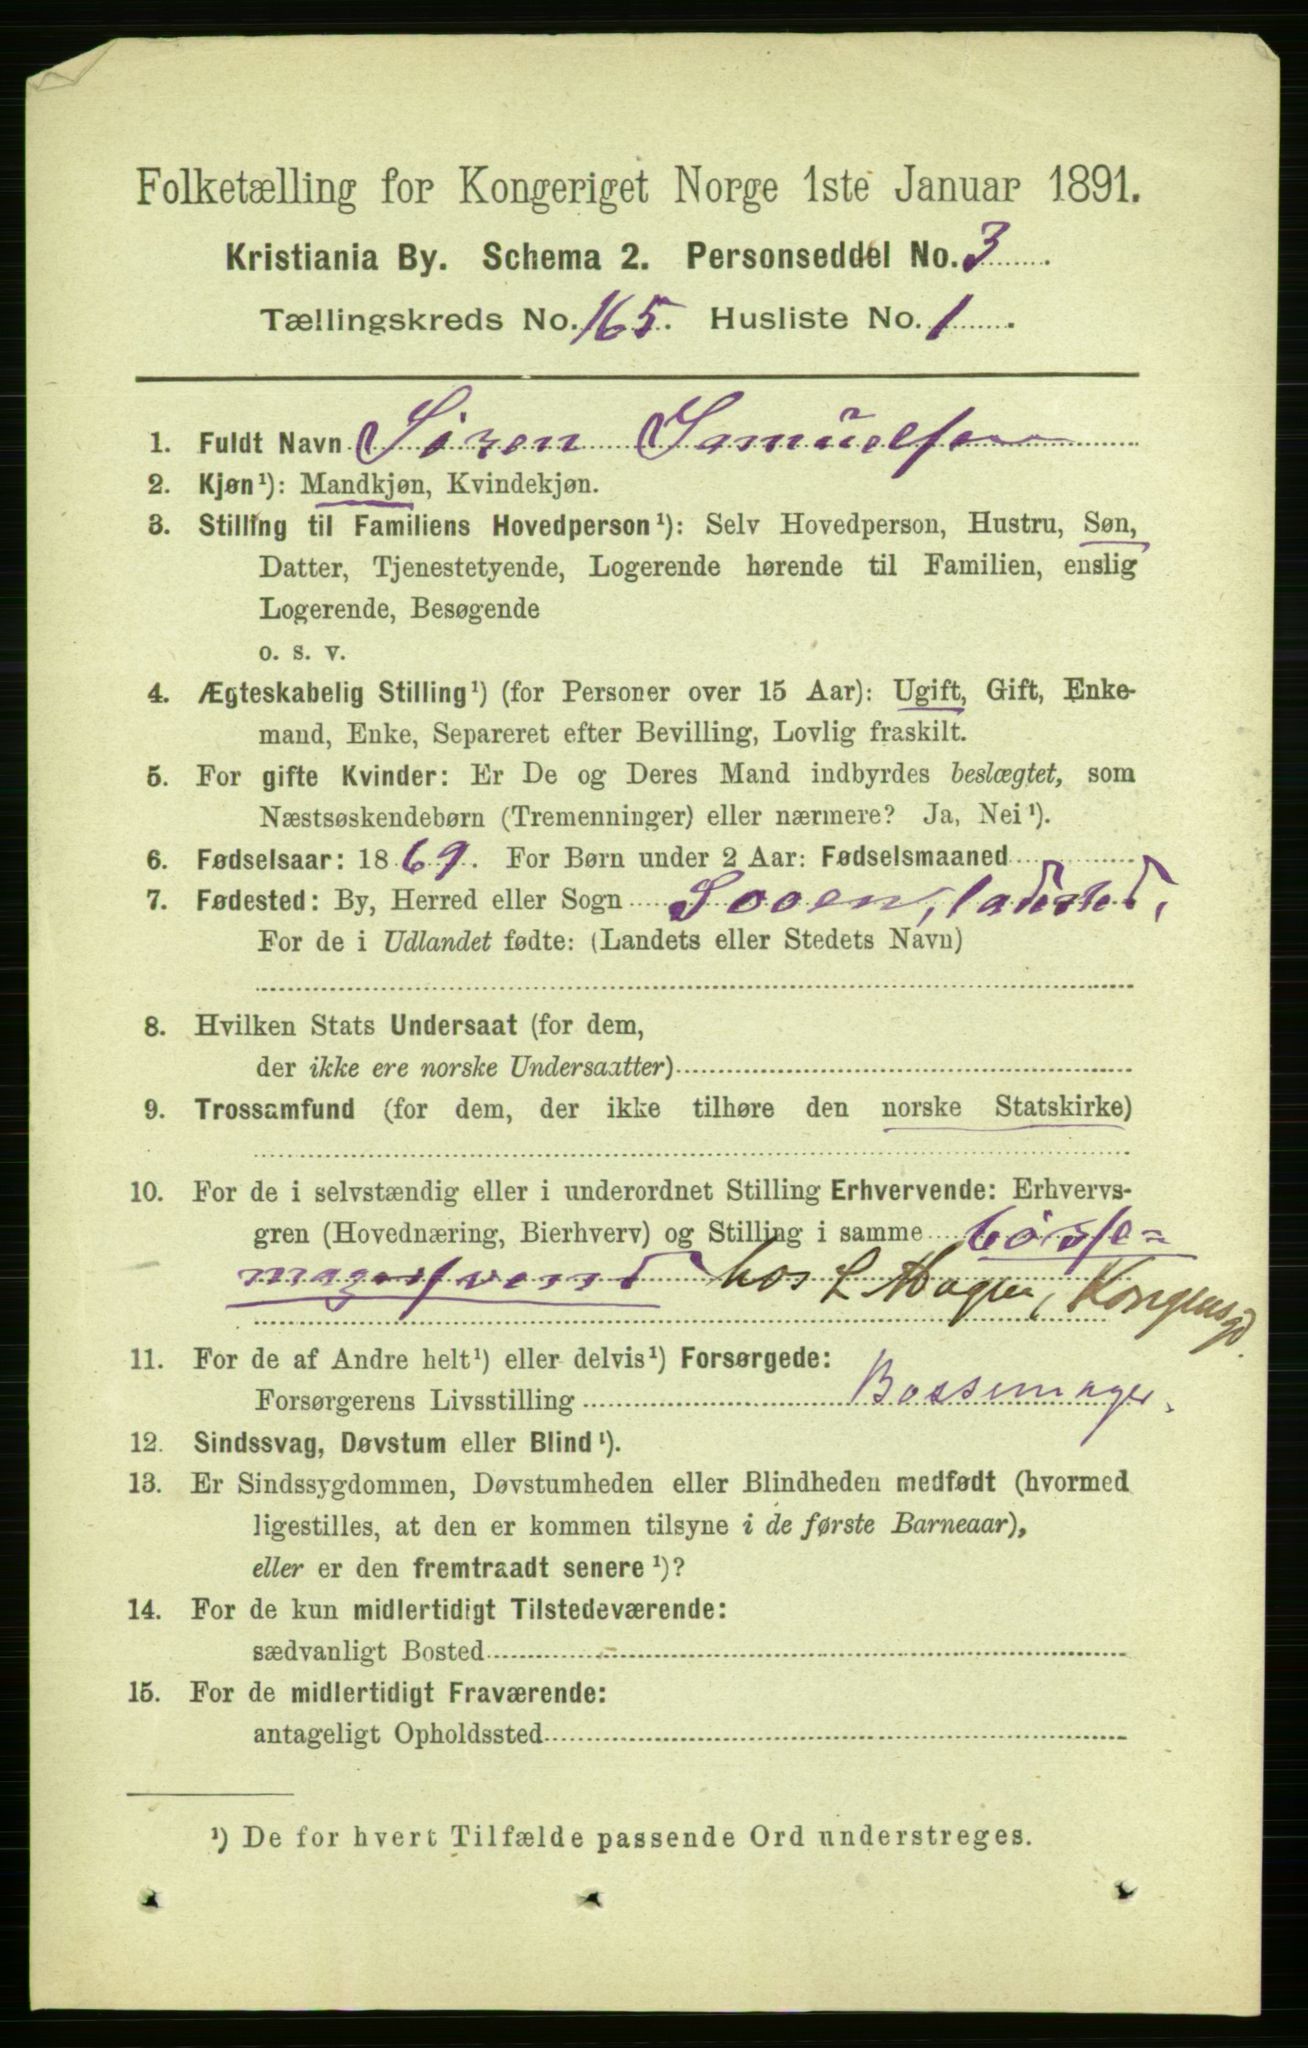 Folketælling for Kongeriget Norge 1ste Januar 1891.
Kristiania By. Schema 2. Personseddel No. 3
Tællingskreds No. 165. Husliste No. 1.
1. Fuldt Navn Sören Samuelsen
2. Kjøn¹): Mandkjøn, Kvindekjøn.
3. Stilling til Familiens Hovedperson¹): Selv Hovedperson, Hustru, Søn,
Datter, Tjenestetyende, Logerende hørende til Familien, enslig
Logerende, Besøgende
o. s. v.
4. Ægteskabelig Stilling¹) (for Personer over 15 Aar): Ugift, Gift, Enke-
mand, Enke, Separeret efter Bevilling, Lovlig fraskilt.
5. For gifte Kvinder: Er De og Deres Mand indbyrdes beslægtet, som
Næstsøskendebørn (Tremenninger) eller nærmere? Ja, Nei¹).
6. Fødselsaar: 1869. For Børn under 2 Aar: Fødselsmaaned
7. Fødested: By, Herred eller Sogn Sooen, ladested,
For de i Udlandet fødte: (Landets eller Stedets Navn)
8. Hvilken Stats Undersaat (for dem,
der ikke ere norske Undersaatter)
9. Trossamfund (for dem, der ikke tilhøre den norske Statskirke)
10. For de i selvstændig eller i underordnet Stilling Erhvervende: Erhvervs-
gren (Hovednæring, Bierhverv) og Stilling i samme bösse=
magersvend hos L Hagen, Kongensgd.
11. For de af Andre helt¹) eller delvis¹) Forsørgede:
Forsørgerens Livsstilling Bøssemager.
12. Sindssvag, Døvstum eller Blind¹).
13. Er Sindssygdommen, Døvstumheden eller Blindheden medfødt (hvormed
ligestilles, at den er kommen tilsyne i de første Barneaar),
eller er den fremtraadt senere¹)?
14. For de kun midlertidigt Tilstedeværende:
sædvanligt Bosted
15. For de midlertidigt Fraværende:
antageligt Opholdssted
¹) De for hvert Tilfælde passende Ord understreges.